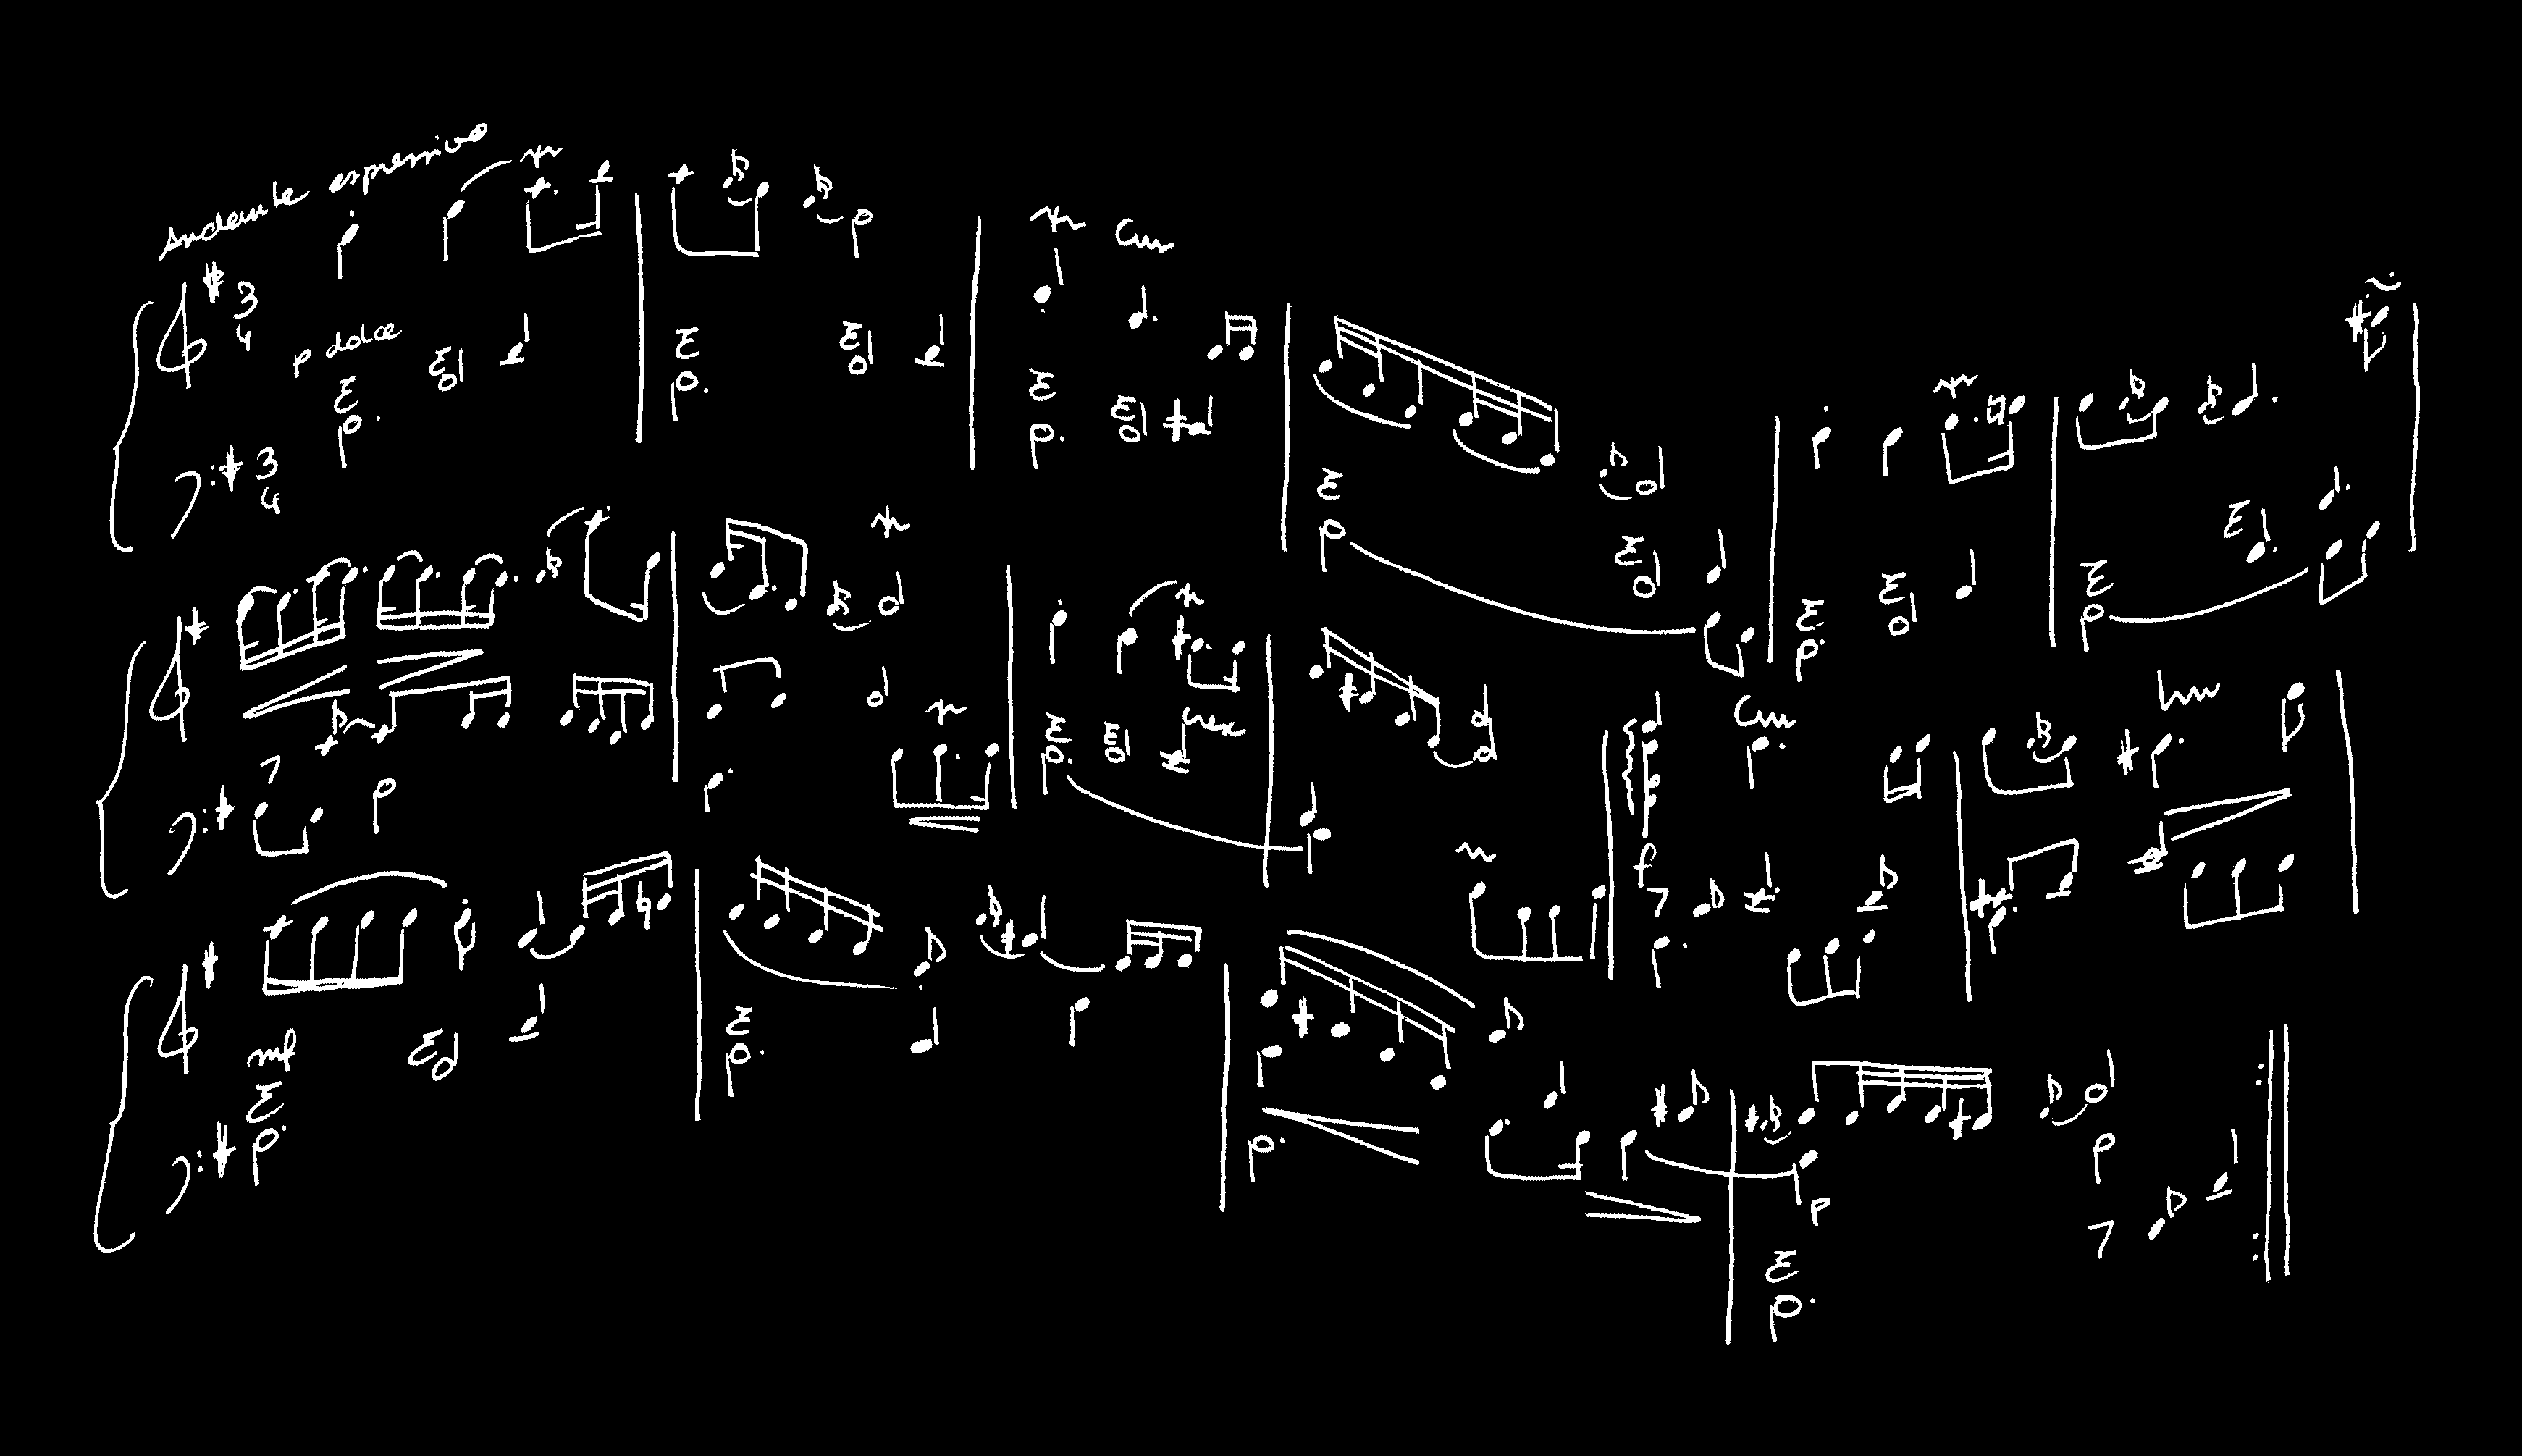 Andante espressivo
3
4
p dolce
3
4
cresc
f
mf
p